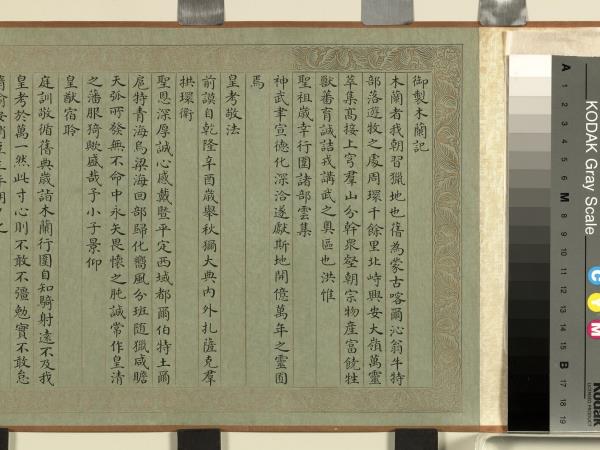 御製木蘭記
木蘭者我朝習獵地也舊為蒙古喀爾沁翁牛特
部落遊牧之處周環千餘里北峙興安大嶺萬靈
萃集高接上穹羣山分幹衆壑朝宗物產富饒牲
獸蕃育誠詰戎講武之奧區也洪惟
聖祖歲幸行圍諸部雲集
神武聿宣德化深洽遂獻斯地開億萬年之靈囿
焉
皇考敬法
前謨自乾隆辛酉歲舉秋獮大典內外扎薩克羣
拱環衛
聖恩深厚誠心感戴暨平定西域都爾伯特土爾
扈特青海烏梁海回部歸化嚮風分班隨獵咸瞻
天弧所發無不命中永矢畏懷之肫誠常作皇清
之藩服猗歟盛哉予小子景仰
皇猷宿聆
庭訓敬循舊典歲詣木蘭行圍自知騎射遠不及我
皇考於萬一然此寸心則不敢不彊勉實不敢怠
KODAK Gray Scale
C
Y
M
Kodak
A 1 2 3 4 5 6 M 8 9 10 11 12 13 14 15 B 17 18 19